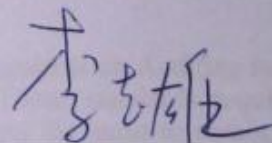 李志雄